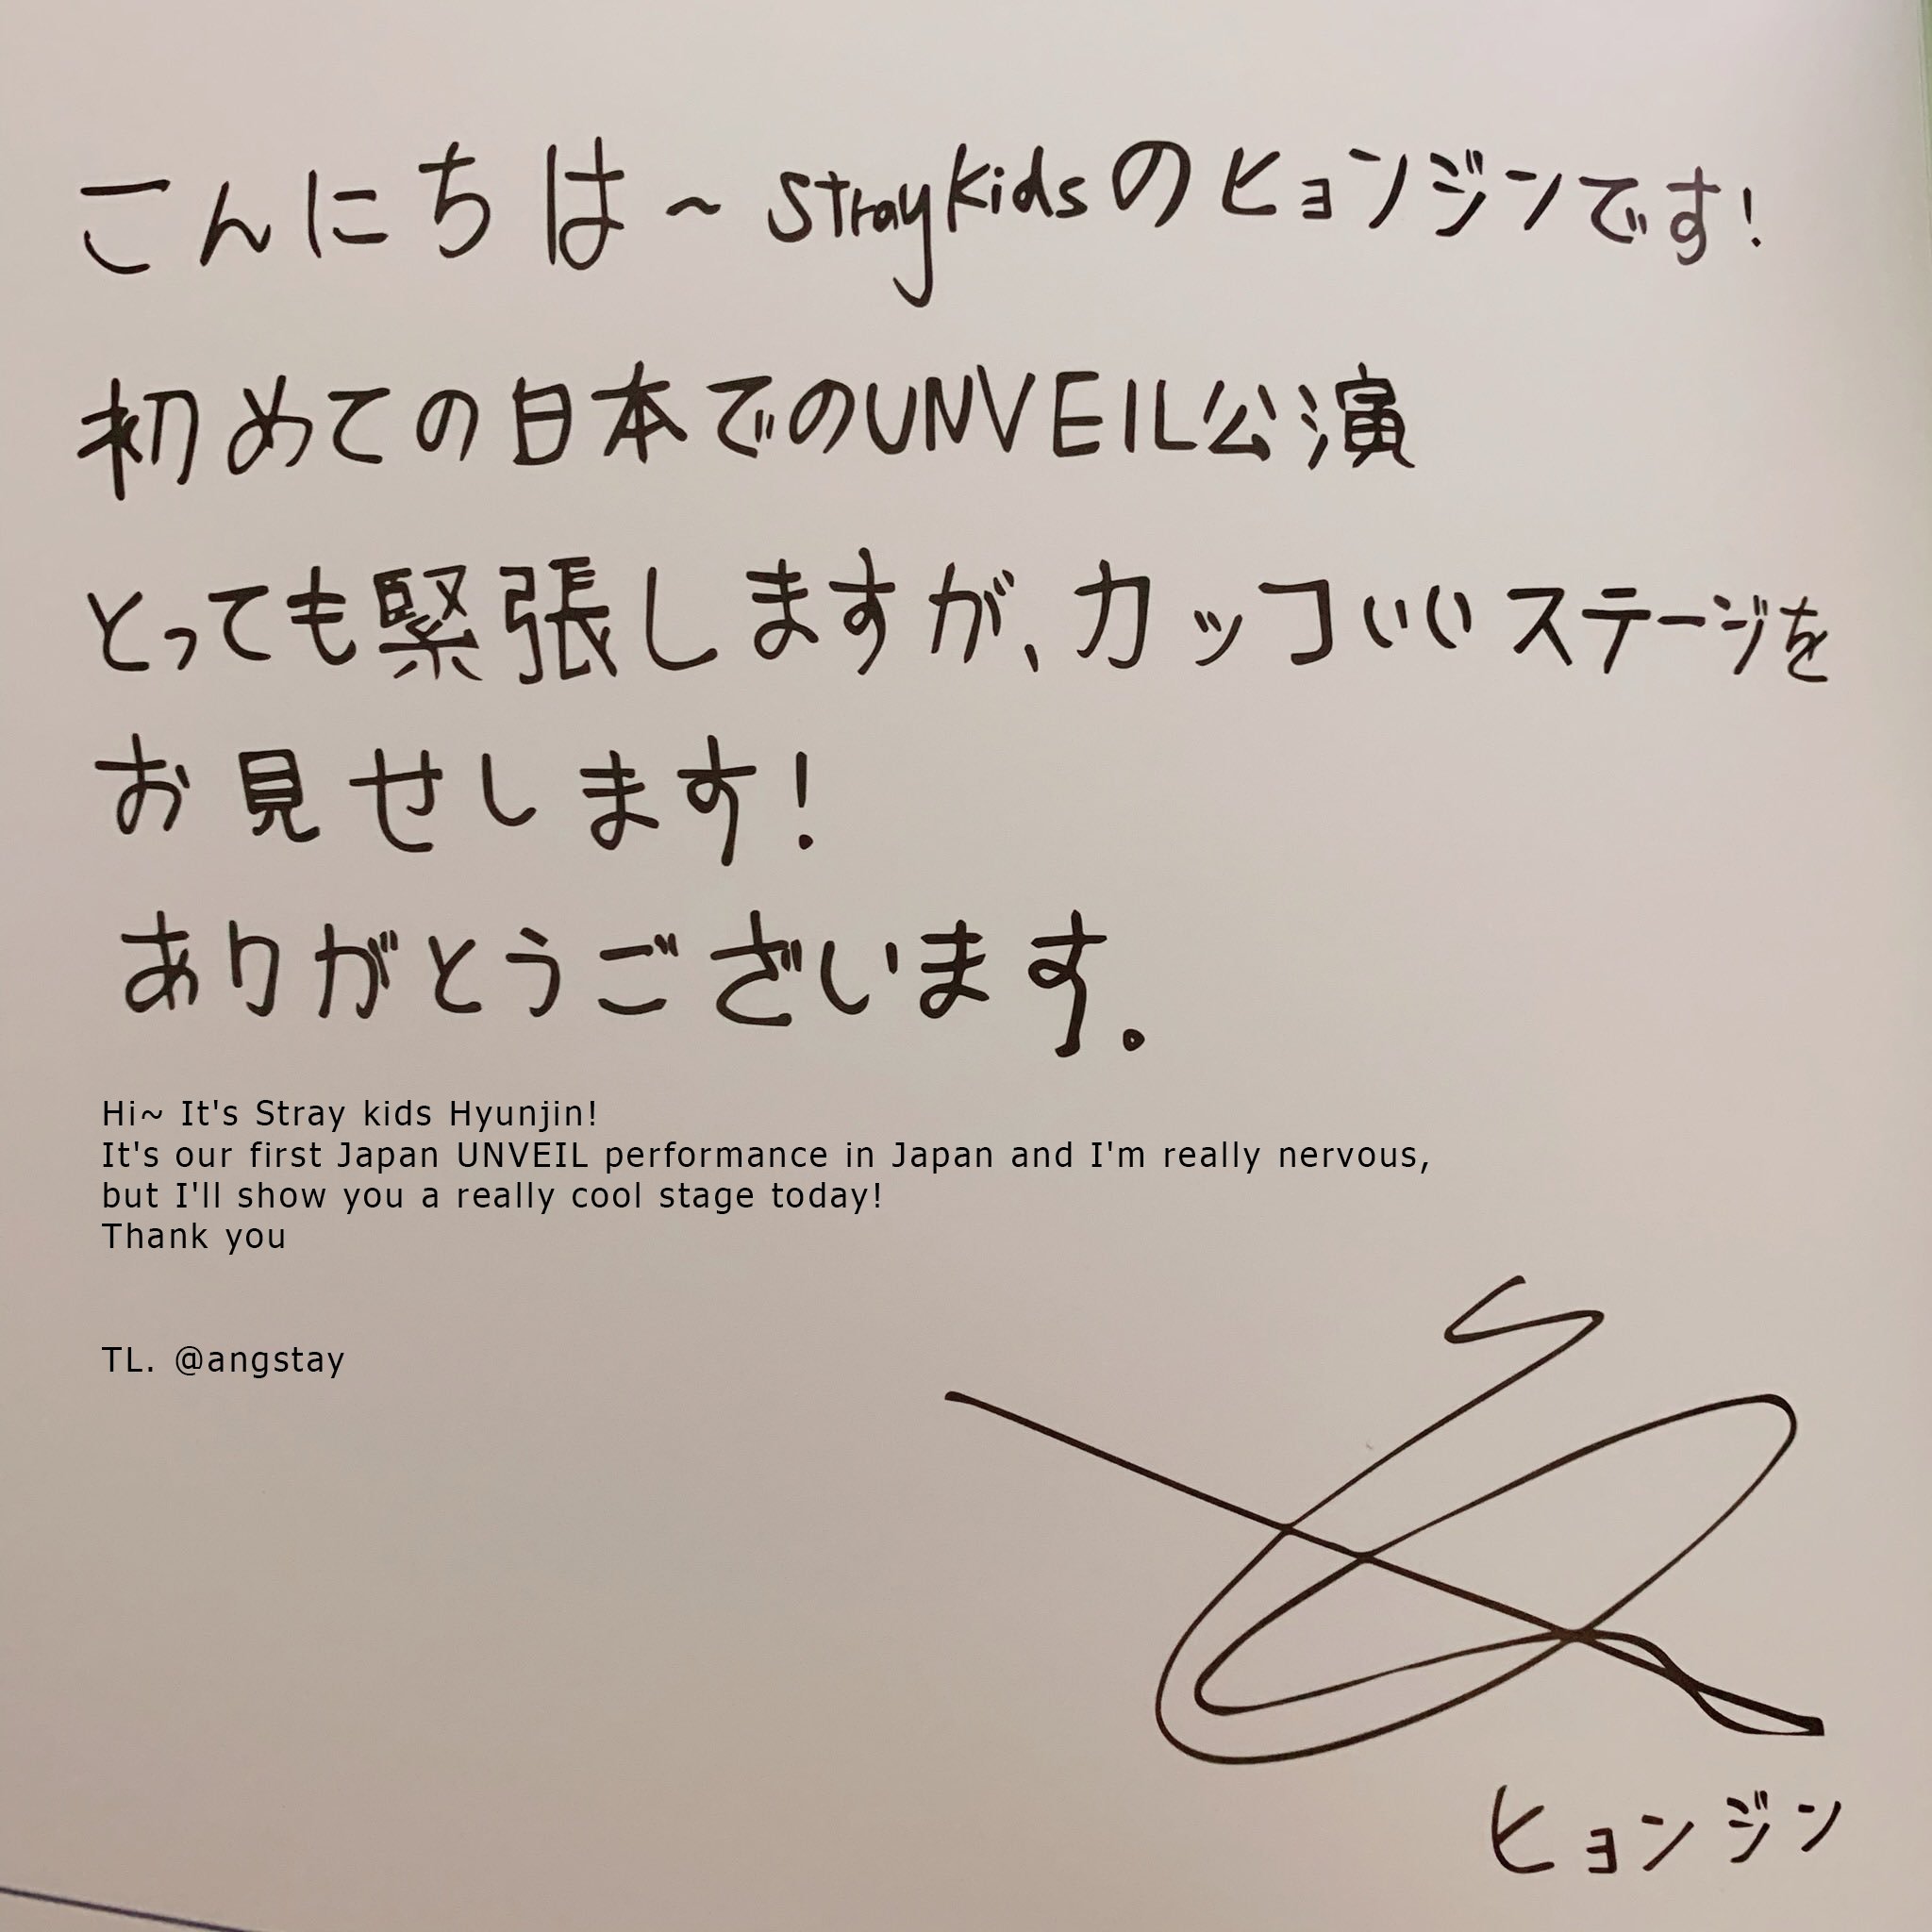 こんにちは～ StrayKidsのヒョンジンです!
初めての日本でのUNVEIL公演
とっても緊張しますが、カッコいいステージを
お見せします!
ありがとうございます。
Hi~ It's Stray kids Hyunjin!
It's our first Japan UNVEIL performance in Japan and I'm really nervous,
but I'll show you a really cool stage today!
Thank you
TL. @angstay
ヒョンジン